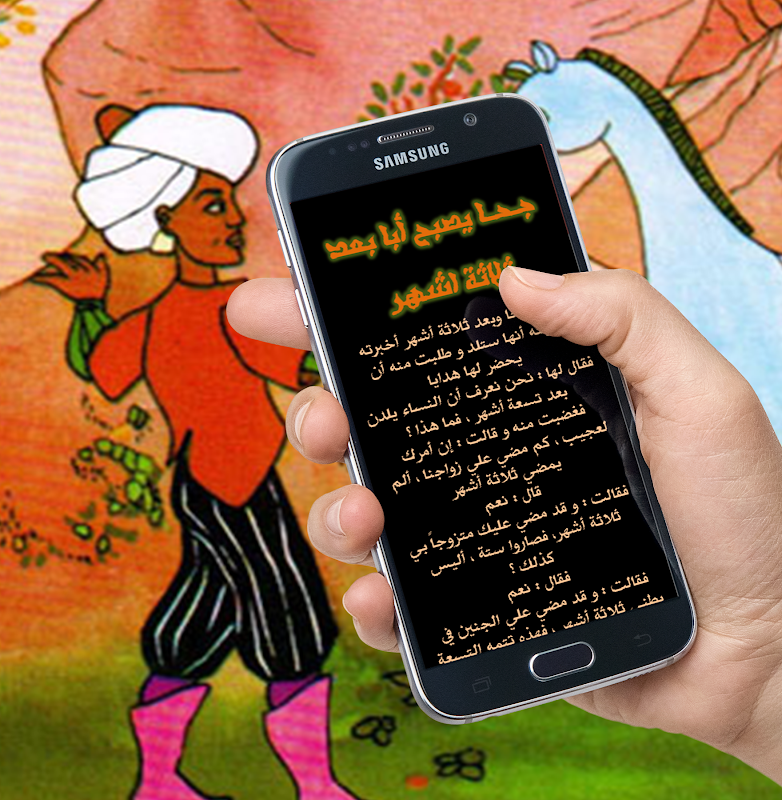 SAMSUNG
جحا يصبح أبا بعد
ثلاثة اشهر
وبعد ثلاثة أشهر أخبرته
أنها ستلد و طلبت منه أن
يحضر لها هدايا
فقال لها : نحن نعرف أن النساء يلدن
بعد تسعة أشهر ، فما هذا ؟
فغضبت منه و قالت : إن أمرك
لعجيب ، كم مضي علي زواجنا ، ألم
يمضي ثلاثة أشهر
قال : نعم
فقالت : و قد مضي عليك متزوجاً بي
ثلاثة أشهر، فصاروا ستة ، أليس
كذلك ؟
فقال : نعم
فقالت : و قد مضي علي الجنين في
بطني ثلاثة أشهر ، فهذه تتمه التسعة